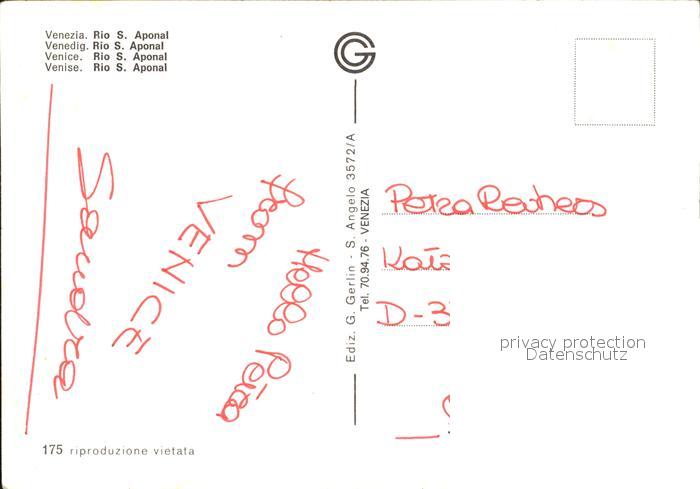 Venezia. Rio S. Aponal
Venedig. Rio S. Aponal
Venice. Rio S. Aponal
Venise. Rio S. Aponal
Hello Petra
from
VENICE
Sandra
Ediz. G. Gerlin - S. Angelo 3572/A
Tel. 70.94.76 - VENEZIA
Petra
D-3
privacy protection
Datenschutz
175 riproduzione vietata